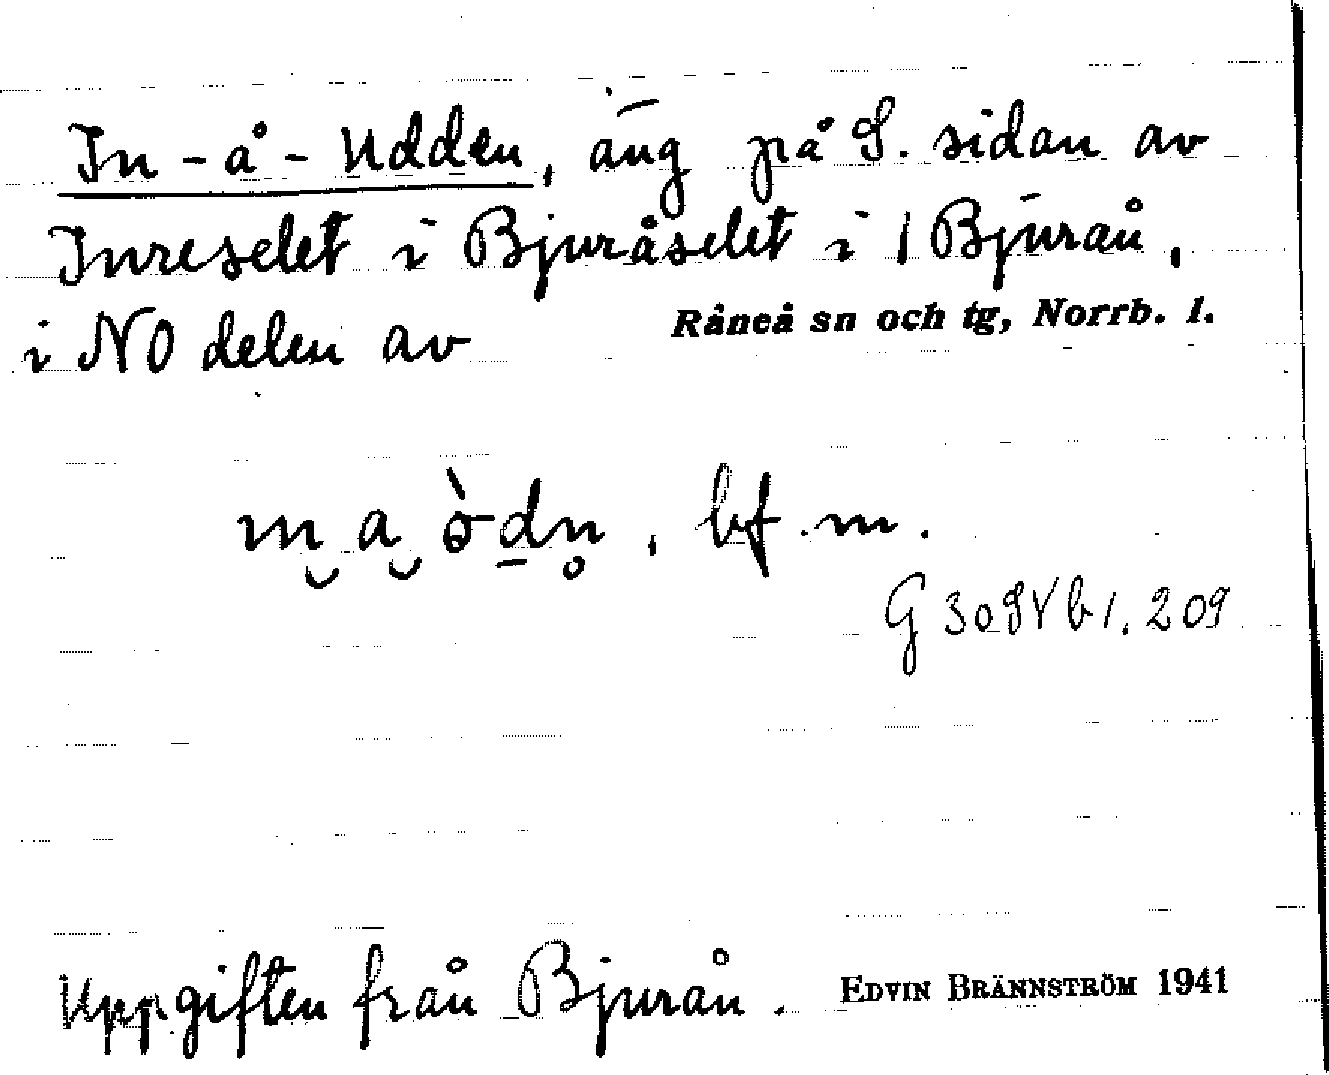 In-å-Udden, äng på S. sidan av
Inreselet i Bjuråselet i | Bjurån,
i NO delen av
Råneå sn och tg, Norrb. l.
bf. m.
G 309 Vb 1. 209
Uppgiften från Bjurån.
EDVIN BRÄNNSTRÖM 1941